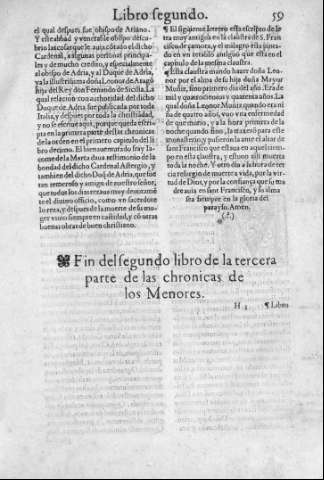 Libro segundo. 59
el qual despues fue obispo de Ariano.
Y este abbad y venerable obispo descu-
brio la cosa que le auia côtado el dicho
Cardenal, a algunas personas principa-
les y de mucho credito, y especialmente
al obispo de Adria, y al Duque de Adria,
y a la illustrissima doña Leonor de Aragõ
hija del Rey don Fernando de Sicilia. La
qual relacion con autoridad del dicho
Duque de Adria fue publicada por toda
Italia, y despues por toda la christiãdad,
y no se escriue aqui, porque queda escri-
pta en la primera parte destas chronicas
de la orden en el primero capitulo del li-
bro decimo. El bienauenturado fray Ia-
come de la Marca daua testimonio de la
bondad del dicho Cardenal
tambien del dicho Duq̃ de Adria, que fue
tan temeroso y amigo de nuestro señor,
que todos los dias rezaua muy deuotamẽ
te el diuino officio, como vn sacerdote
lo reza, y despues de la muerte de su mu-
ger viuio siempre en castidad, y cõ otras
buenas obras de buen christiano.
¶ El siguiente letrero esta escripto de le-
tra muy antigua en la claustra de S. Fran
cisco de çamora, y el milagro esta pinta-
do en vn retablo antiguo que esta en el
capitulo de la mesma claustra.
¶ Esta claustra mando hazer doña Leo-
nor por el alma de su hija doña Mayor
Muñiz, fino primero dia del año. Era de
mil y quatrocientos y quarenta años. La
qual doña Leonor Muñiz quando era ni
ña de quatro años, vno vna enfermedad
que duro vn dia, y a la hora primera de la
noche quando fino, la traxeron para este
monasterio y pusieron la ante el altar de
san Francisco que estaua en aquel tiem-
po en esta claustra, y estuuo assi muerta
toda la noche. Y otro dia a la hora de ter
cia resurgio de muerta a vida, por la vir-
tud de Dios, y por la confiança que su ma
dre auia en sant Francisco, y su alma
sea siempre en la gloria del
parayso. Amen.
(.?.)
Fin del segundo libro de la tercera
parte de las chronicas de
los Menores.
H 3 ¶ Libro